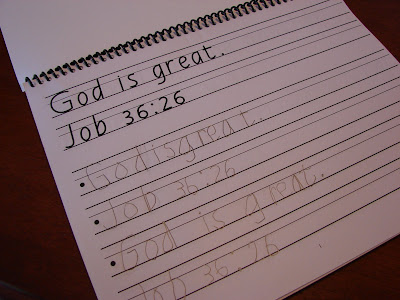 God is great.
Job 36:26
• Godisgreat.
• Job 36:26
• God is great.
Job 36:26